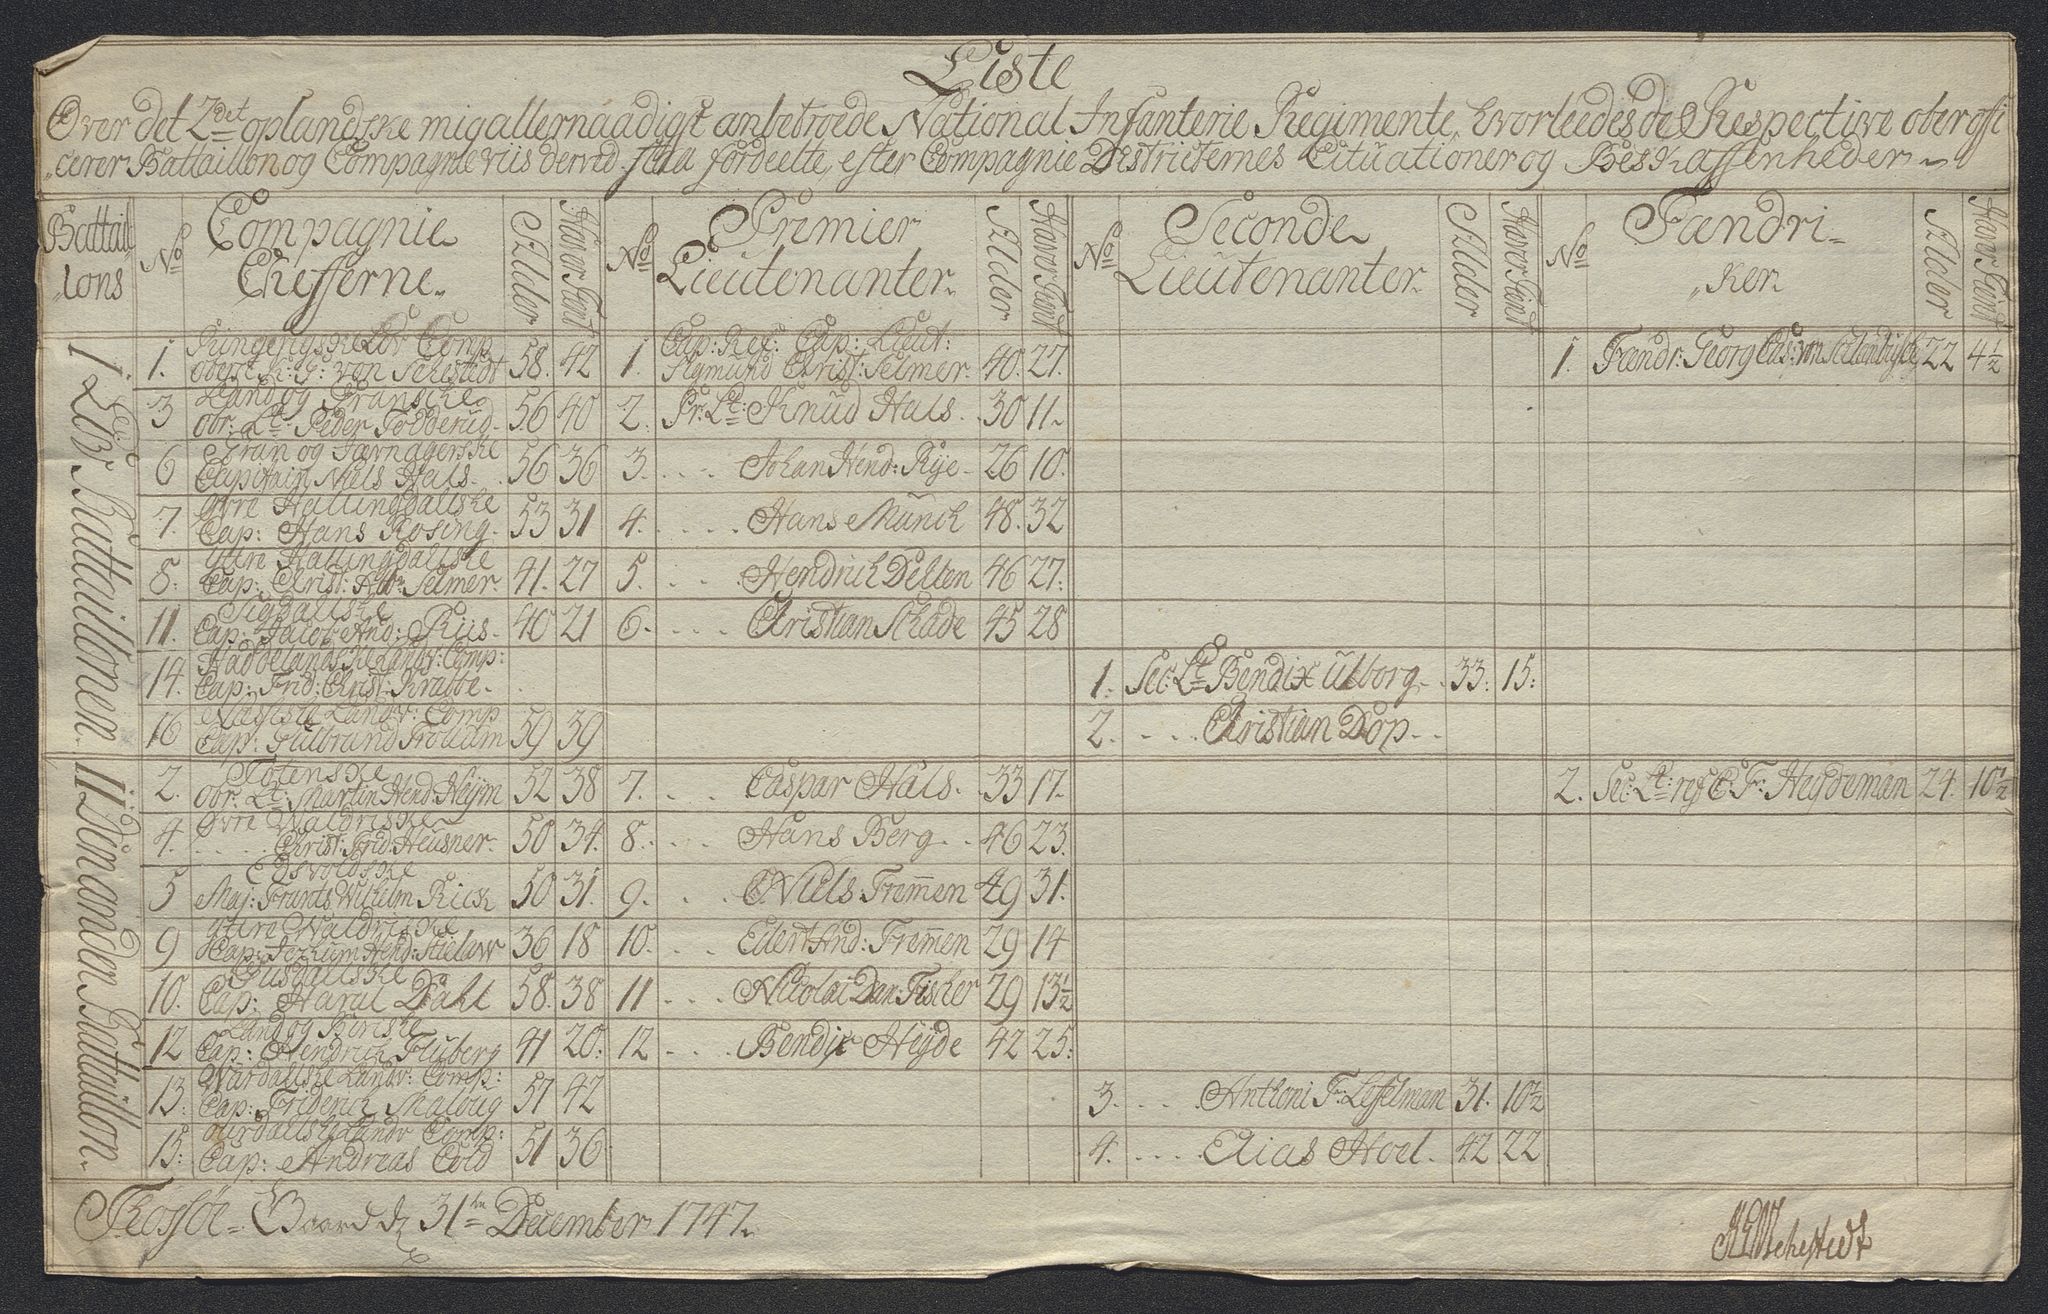 Liste
Over det 2det oplandske mig allernaadigst anbetroede National Infanterie Regimente, hvorledes de Respective oberoffi
cerer Battaillon og Compagnie viis derved staa fordeelte, efter Compagnie Districternes Situationer og Beskaffenheder
Battail
lons
No
Compagnie
Chefferne
Alder
Haver Tient
No
Premier
Lieutenanter
Alder
Haver Tient
No
Seconde
Lieutenanter
Alder
Haver Tient
No
Fændri
ker
Alder
Haver Tient
1. Battaillonen
1. Ringerigske Liv Comp
von Sehestedt 58. 42 1. Cap: Ref: Cap: Lieut:
Sigmund Christ: Selmer 40. 27. 1. Fændr: Georg 22 4½
3 Land og Transche
obr: Lt: Peder Todderud 56 40 2. Pr: Lt: Knud Hals 30 11.
6 Gran og Jævnagerske
Capitain Niels Hals 56 36 3. Johan Hend: Rye 26 10.
7. Øvre Hallingdalske
Cap: Hans Rosing 53 31 4. Hans Munch 48. 32
8. Ytre Hallingdalske
Cap: Christ: Selmer 41. 27 5. Hendrich Delten 46 27.
11. Sigdalske
Cap: Jacob And: Riis 40 21 6. Christian Schade 45 28
14. Haddelandske Landv: Comp:
Cap: Frid: Christ: Krabbe 1. Sec: Lt Bendix Ulborg 33. 15:
16 Landv: Comp
Cap: Gulbrand 59 39 2. Christian Dop
II Den anden Battaillon.
2. Totenske
obr: Lt: Martin Hend: Heym 52 38 7. Caspar Hals 33 17. 2. Sec: Lt: ref C. F: Heydeman 24. 10½
4. Øvre Waldriske
Christ: Frid: Heusner 50 34. 8. Hans Berg 46 23.
5 Edsvoldske
Maj: Frants Wilhelm Rick 50 31. 9. Niels Fremmen 49 31.
9 Ytre Waldriske
Cap: Jochum Hend: Stielow 36 18 10. Eilert And: Fremmen 29 14
10. Cap: Harul Dahl 58. 38 11 Nicolai Dan: Fischer 29 13½
12 Land og Birriske
Cap: Hendrich Fluberg 41 20: 12 Bendix Heyde 42 25:
13: Wardalske Landv: Comp:
Cap: Friderich Maltug 57 42 3. Anthoni F: Lesselman 31. 10½
15: Landv Comp:
Cap: Andreas Cold 51 36 4. Elias Hoel 42 22
Gaard d 31te December 1747
Sehestedt